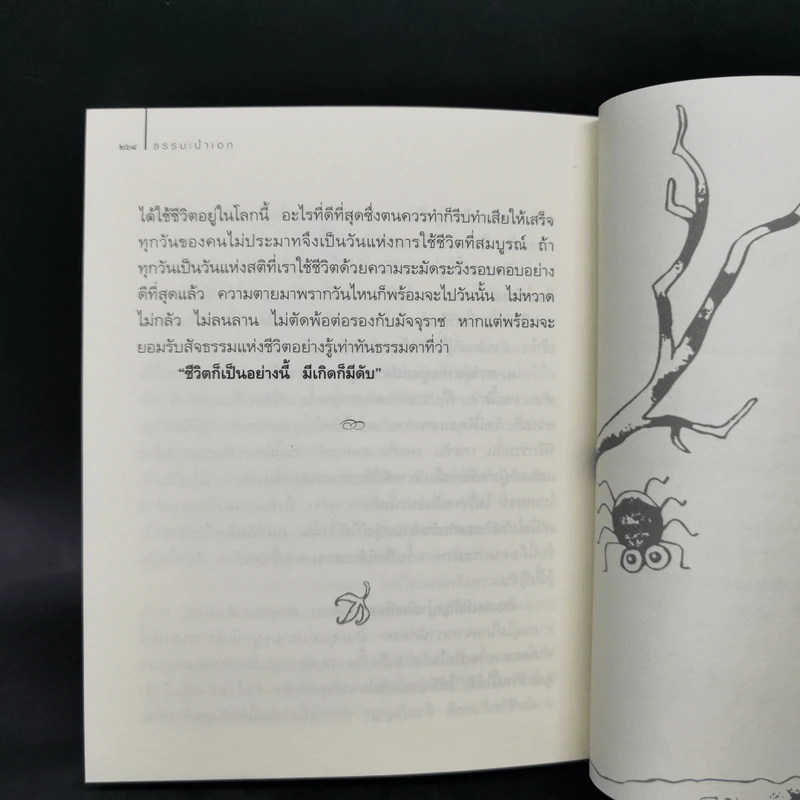 ๒๖๘ ธรรมะบำเอก
ได้ใช้ชีวิตอยู่ในโลกนี้ อะไรที่ดีที่สุดซึ่งตนควรทำก็รีบทำเสียให้เสร็จ
ทุกวันของคนไม่ประมาทจึงเป็นวันแห่งการใช้ชีวิตที่สมบูรณ์ ถ้า
ทุกวันเป็นวันแห่งสติที่เราใช้ชีวิตด้วยความระมัดระวังรอบคอบอย่าง
ดีที่สุดแล้ว ความตายมาพรากวันไหนก็พร้อมจะไปวันนั้น ไม่หวาด
ไม่กลัว ไม่ลนลาน ไม่ตัดพ้อต่อรองกับมัจจุราช หากแต่พร้อมจะ
ยอมรับสัจธรรมแห่งชีวิตอย่างรู้เท่าทันธรรมดาที่ว่า
“ชีวิตก็เป็นอย่างนี้ มีเกิดก็มีดับ”